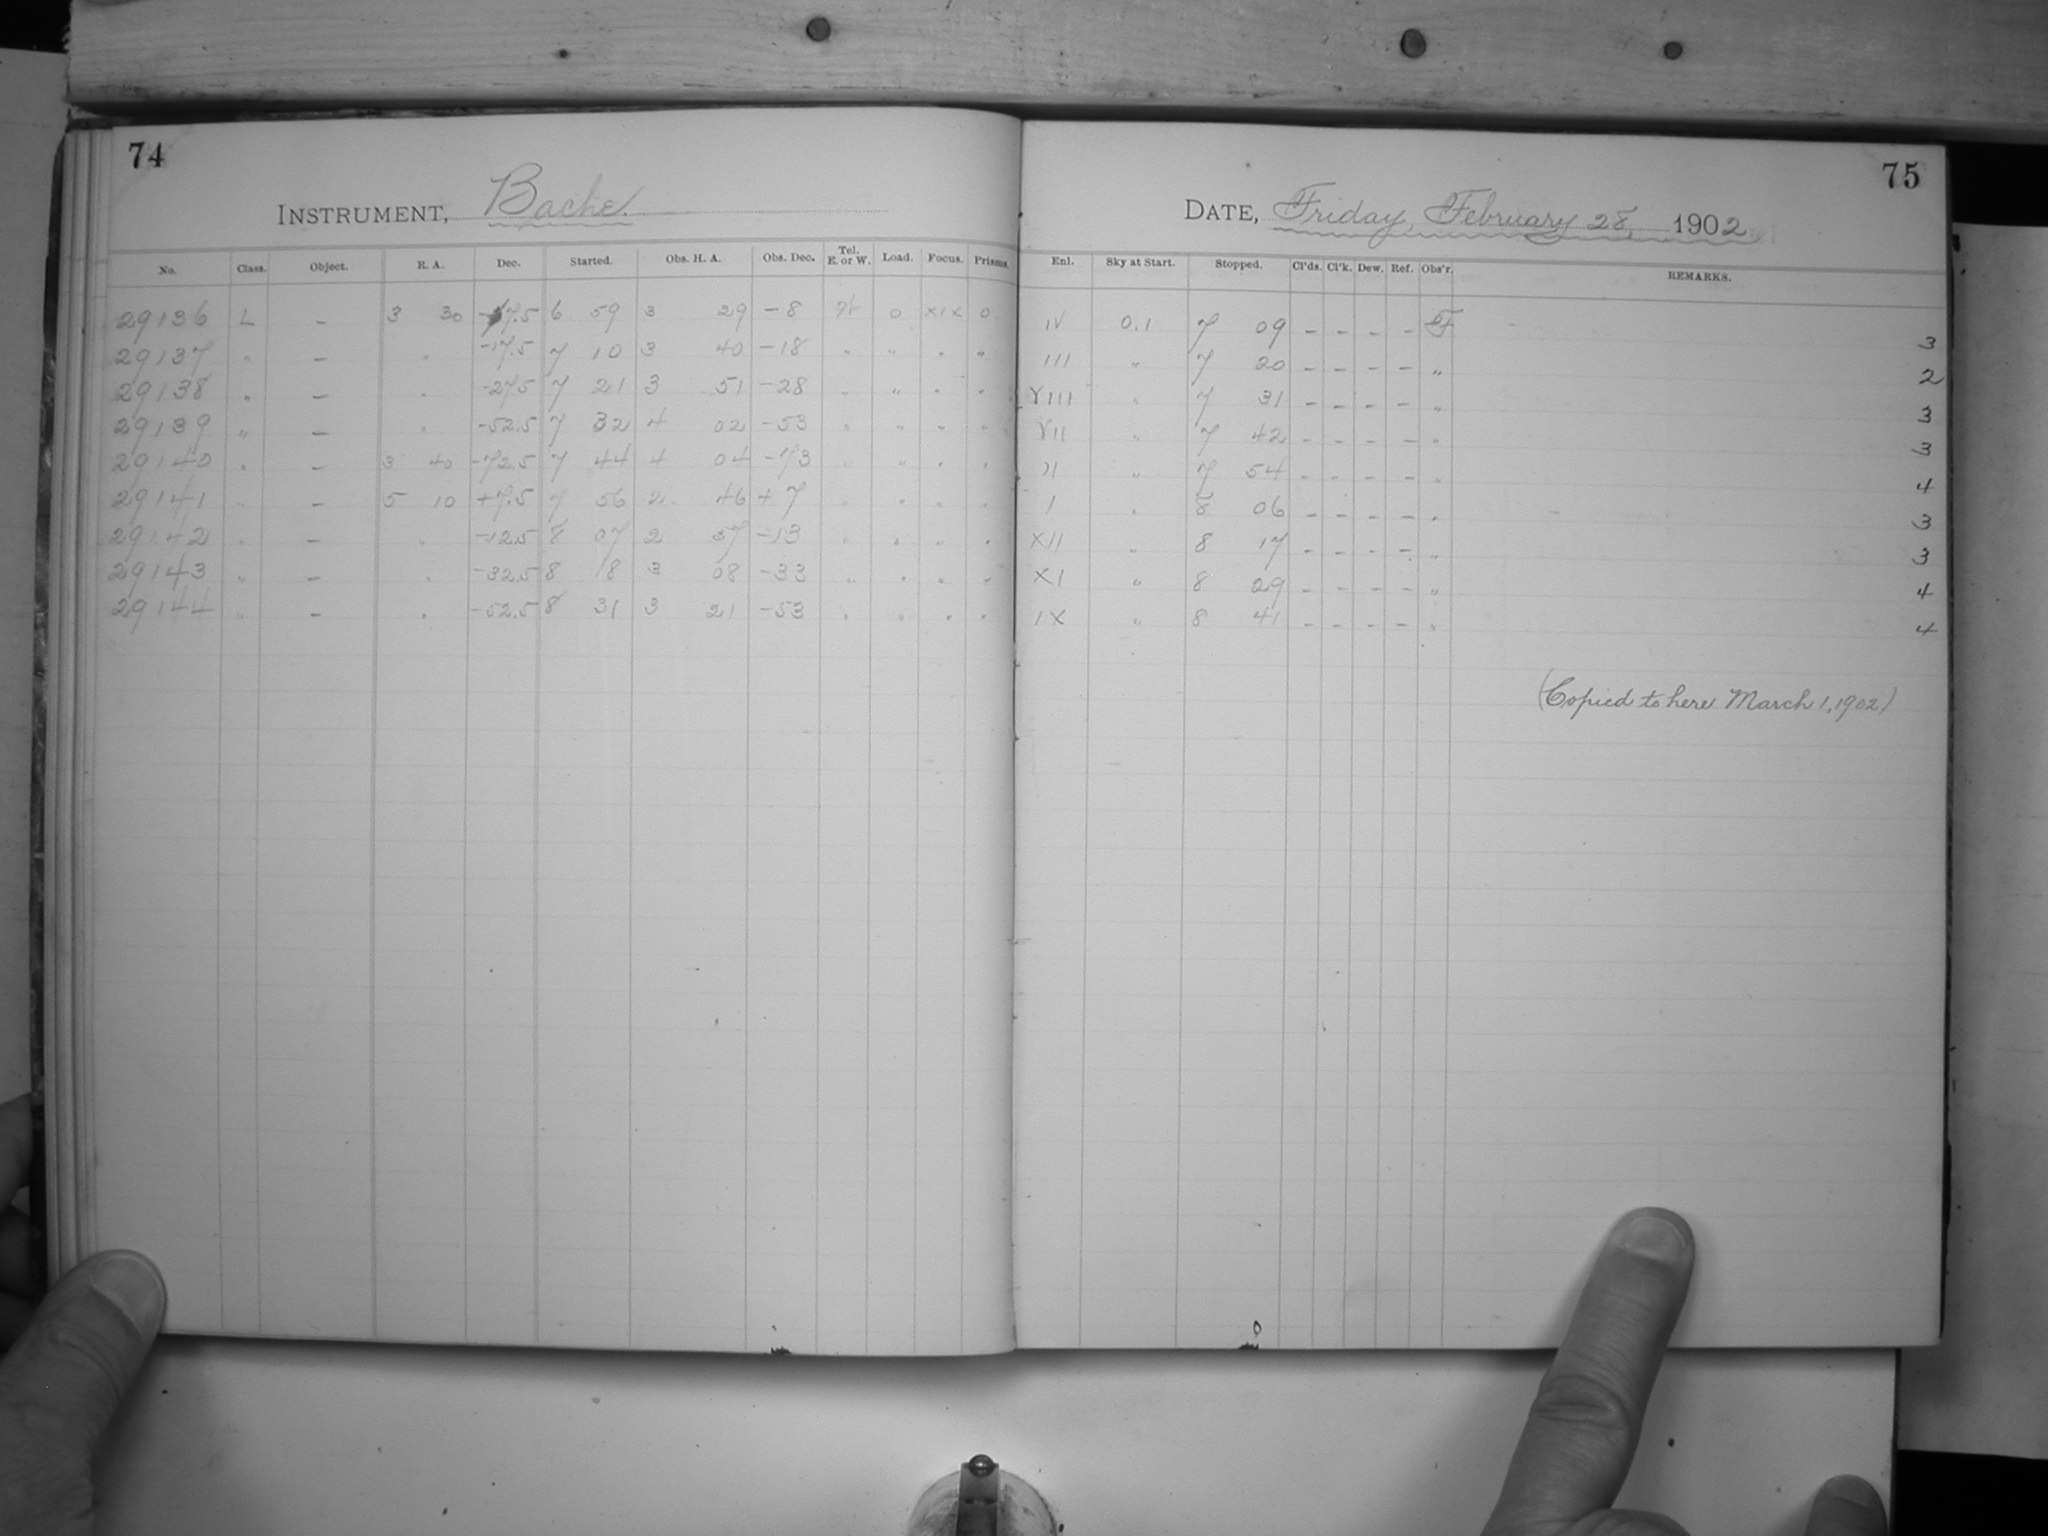 74
INSTRUMENT, Bache.
No. Class. Object. R. A. Dec. Started. Obs. H. A. Obs. Dec. Tel. E. or W. Load. Focus. Prisms.
29136 L – 3 30 -7.5 6 59 3 29 -8 W 0 XIX 0
29137 " – " -17.5 7 10 3 40 -18 " " " "
29138 " – " -27.5 7 21 3 51 -28 " " " "
29139 " – " -52.5 7 32 4 02 -53 " " " "
29140 " – 3 40 -72.5 7 44 4 04 -73 " " " "
29141 " – 5 10 +7.5 7 56 2 46 +7 " " " "
29142 " – " -12.5 8 07 2 57 -13 " " " "
29143 " – " -32.5 8 18 3 08 -33 " " " "
29144 " – " -52.5 8 31 3 21 -53 " " " "
75
DATE, Friday, February 28, 1902.
Enl. Sky at Start. Stopped. Cl'ds. Cl'k. Dew. Ref. Obs'r. REMARKS.
IV 0.1 7 09 – – – – F 3
III " 7 20 – – – – " 2
VIII " 7 31 – – – – " 3
VII " 7 42 – – – – " 3
" 7 54 – – – – " 4
I " 8 06 – – – – " 3
XII " 8 17 – – – – " 3
XI " 8 29 – – – – " 4
IX " 8 41 – – – – " 4
(Copied to here March 1, 1902)